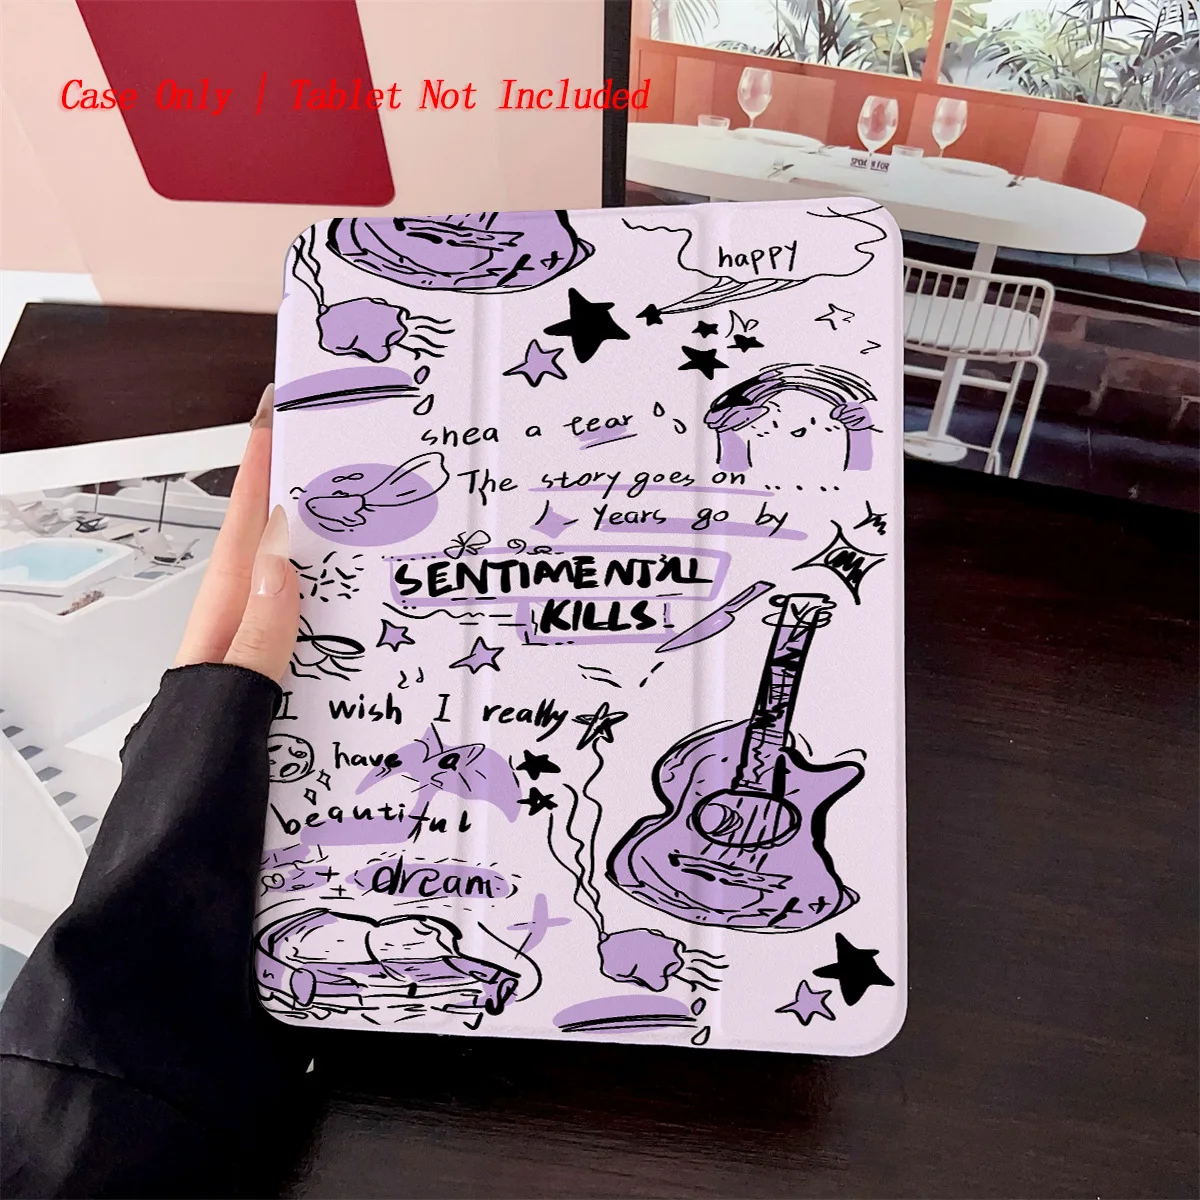 Case Only | Tablet Not Included
happy
shea a tear
The story goes on .. . . .
Years go by
SENTIMENTAL
KILLS
I wish I really
have a
beautiful
dream